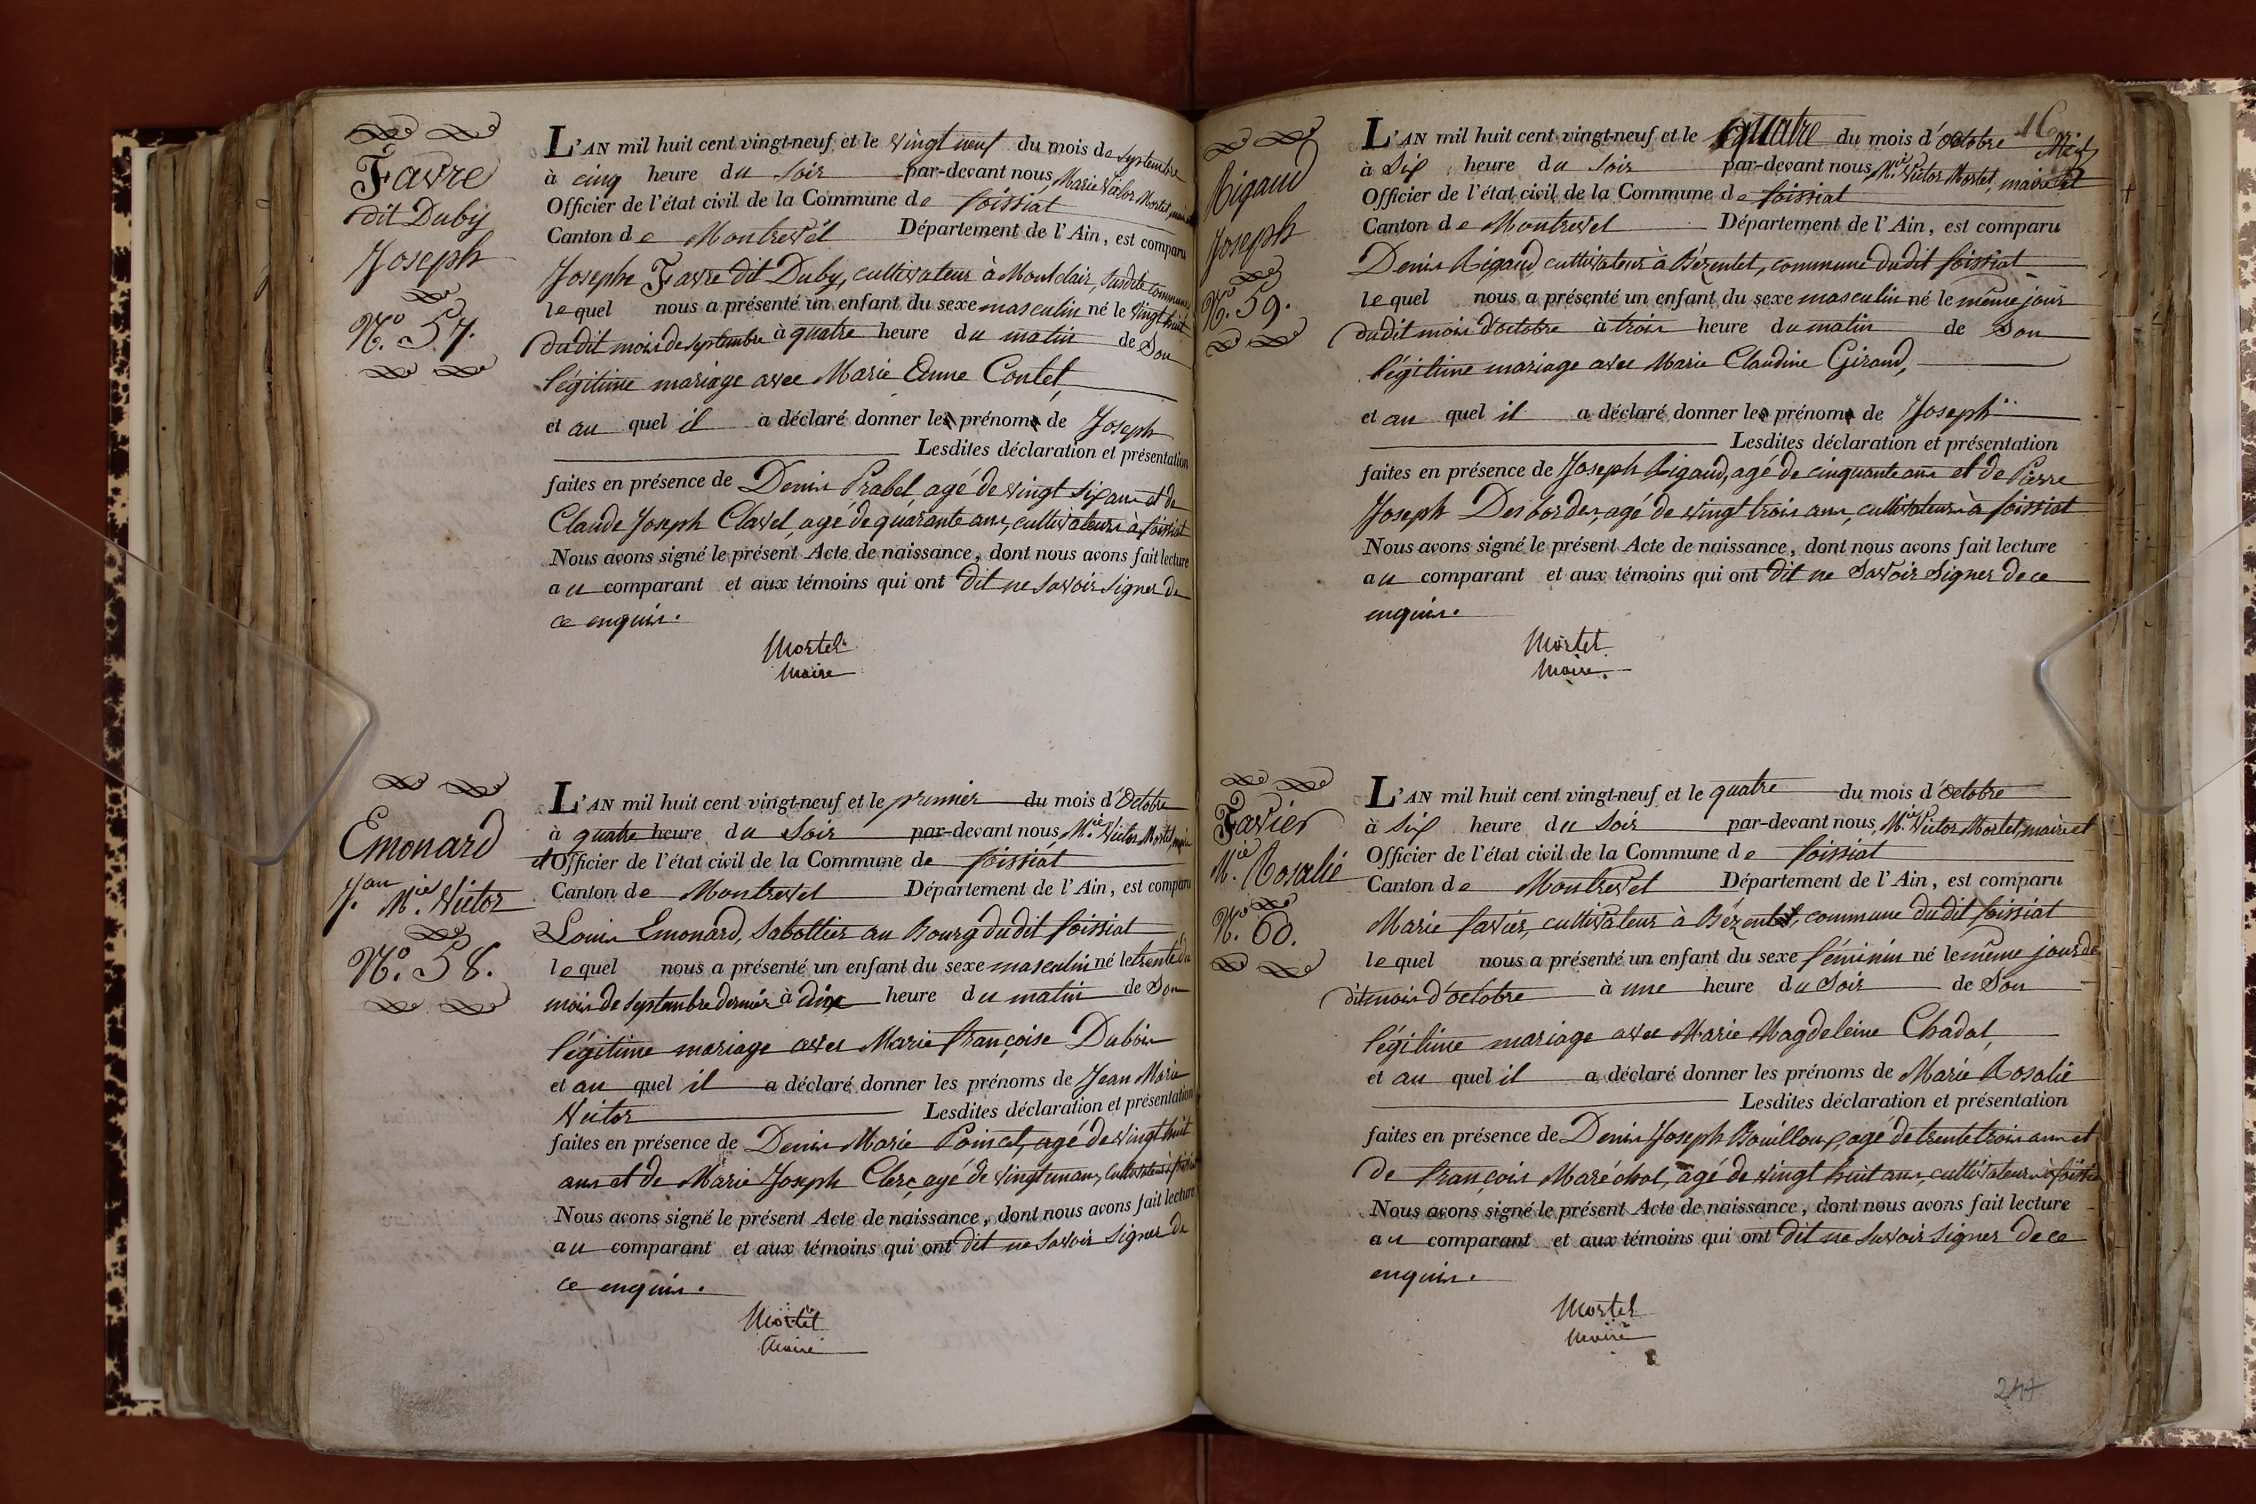 Favre
dit Duby
Joseph
N.º 57.
L'AN mil huit cent vingt-neuf et le vingt neuf du mois de septembre
à cinq heure du soir par-devant nous Marie Victor Mortet, maire et
Officier de l'état civil de la Commune de foissiat
Canton de Montrevel Département de l'Ain, est comparu
Josephe Favre dit Duby, cultivateur à Montclair, susdite commune,
lequel nous a présenté un enfant du sexe masculin né le vingt huit
dudit mois de septembre à quatre heure du matin de son
légitime mariage avec Marie Anne Contet,
et au quel il a déclaré donner les prénoms de Joseph
Lesdites déclaration et présentation
faites en présence de Denis Prabel, agé de vingt six ans et de
Claude Joseph Clavel, agé de quarante ans, cultivateurs à foissiat
Nous avons signé le présent Acte de naissance, dont nous avons fait lecture
au comparant et aux témoins qui ont dit ne savoir signer de
ce enquis.
Mortet
Maire
Emonard
J.an M.ie Victor
N.º 58.
L'AN mil huit cent vingt-neuf et le premier du mois d'octobre
à quatre heure du soir par-devant nous, M.ie Victor Mortet, maire
et Officier de l'état civil de la Commune de foissiat
Canton de Montrevel Département de l'Ain, est comparu
Louis Emonard, sabottier au Bourg dudit foissiat
lequel nous a présenté un enfant du sexe masculin né le trente du
mois de septembre dernier à dix heure du matin de son
légitime mariage avec Marie françoise Dubois
et au quel il a déclaré donner les prénoms de Jean Marie
Victor Lesdites déclaration et présentation
faites en présence de Denis Marie Poincet, agé de vingt huit
ans et de Marie Joseph Clerc, agé de vingt un ans, cultivateurs à foissiat
Nous avons signé le présent Acte de naissance, dont nous avons fait lecture
au comparant et aux témoins qui ont dit ne savoir signer de
ce enquis.
Mortet
Maire
16
Rigaud
Joseph
N.º 59.
L'AN mil huit cent vingt-neuf et le quatre du mois d'octobre
à six heure du soir par-devant nous, M.ie Victor Mortet, maire et
Officier de l'état civil de la Commune de foissiat
Canton de Montrevel Département de l'Ain, est comparu
Denis Rigaud, cultivateur à Bézentet, commune dudit foissiat
lequel nous a présenté un enfant du sexe masculin né le même jour
dudit mois d'octobre à trois heure du matin de son
légitime mariage avec Marie Claudine Giraud,
et au quel il a déclaré donner les prénoms de Joseph
Lesdites déclaration et présentation
faites en présence de Joseph Rigaud, agé de cinquante ans et de Pierre
Joseph Desbordes, agé de vingt trois ans, cultivateurs à foissiat
Nous avons signé le présent Acte de naissance, dont nous avons fait lecture
au comparant et aux témoins qui ont dit ne savoir signer de ce
enquis.
Mortet
Maire.
Favier
M.ie Rosalie
N.º 60.
L'AN mil huit cent vingt-neuf et le quatre du mois d'octobre
à six heure du soir par-devant nous, M.ie Victor Mortet, maire et
Officier de l'état civil de la Commune de foissiat
Canton de Montrevel Département de l'Ain, est comparu
Marie favier, cultivateur à Bézentet, commune dudit foissiat
lequel nous a présenté un enfant du sexe féminin né le même jour de
dit mois d'octobre à une heure du soir de son
légitime mariage avec Marie Magdeleine Chadal,
et au quel il a déclaré donner les prénoms de Marie Rosalie
Lesdites déclaration et présentation
faites en présence de Denis Joseph Bouilloux, agé de trente trois ans et
de françois Maréchal, agé de vingt huit ans, cultivateurs à foissiat
Nous avons signé le présent Acte de naissance, dont nous avons fait lecture
au comparant et aux témoins qui ont dit ne savoir signer de ce
enquis.
Mortet
Maire
247